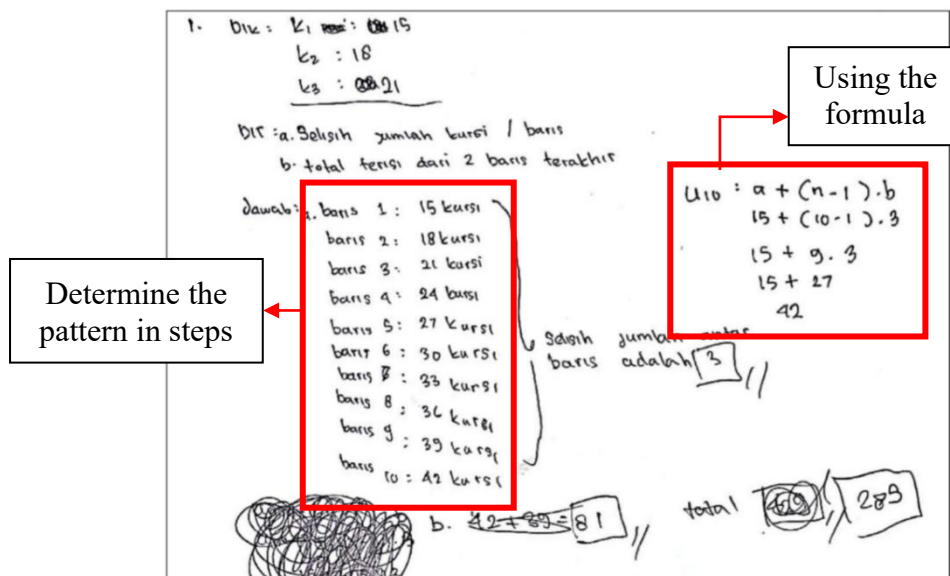 1. DIK : K1 : 15
K2 : 18
K3 : 21
DIT : a. Selisih jumlah kursi / baris
b. total terisi dari 2 baris terakhir
Jawab : a. baris 1 : 15 kursi
baris 2 : 18 kursi
baris 3 : 21 kursi
baris 4 : 24 kursi
baris 5 : 27 kursi
baris 6 : 30 kursi
baris 7 : 33 kursi
baris 8 : 36 kursi
baris 9 : 39 kursi
baris 10 : 42 kursi
Selisih jumlah antar
baris adalah 3 //
U10 : a + (n-1).b
15 + (10-1).3
15 + 9.3
15 + 27
42
b. 42 + 39 = 81 //
total // 289
Using the
formula
Determine the
pattern in steps